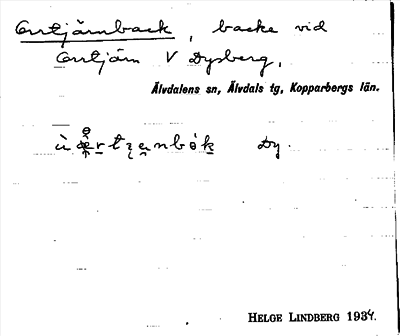 Orrtjärnback, backe vid
Orrtjärn V Dysberg.
Älvdalens sn, Älvdals tg, Kopparbergs län.
Dy.
HELGE LINDBERG 1934.